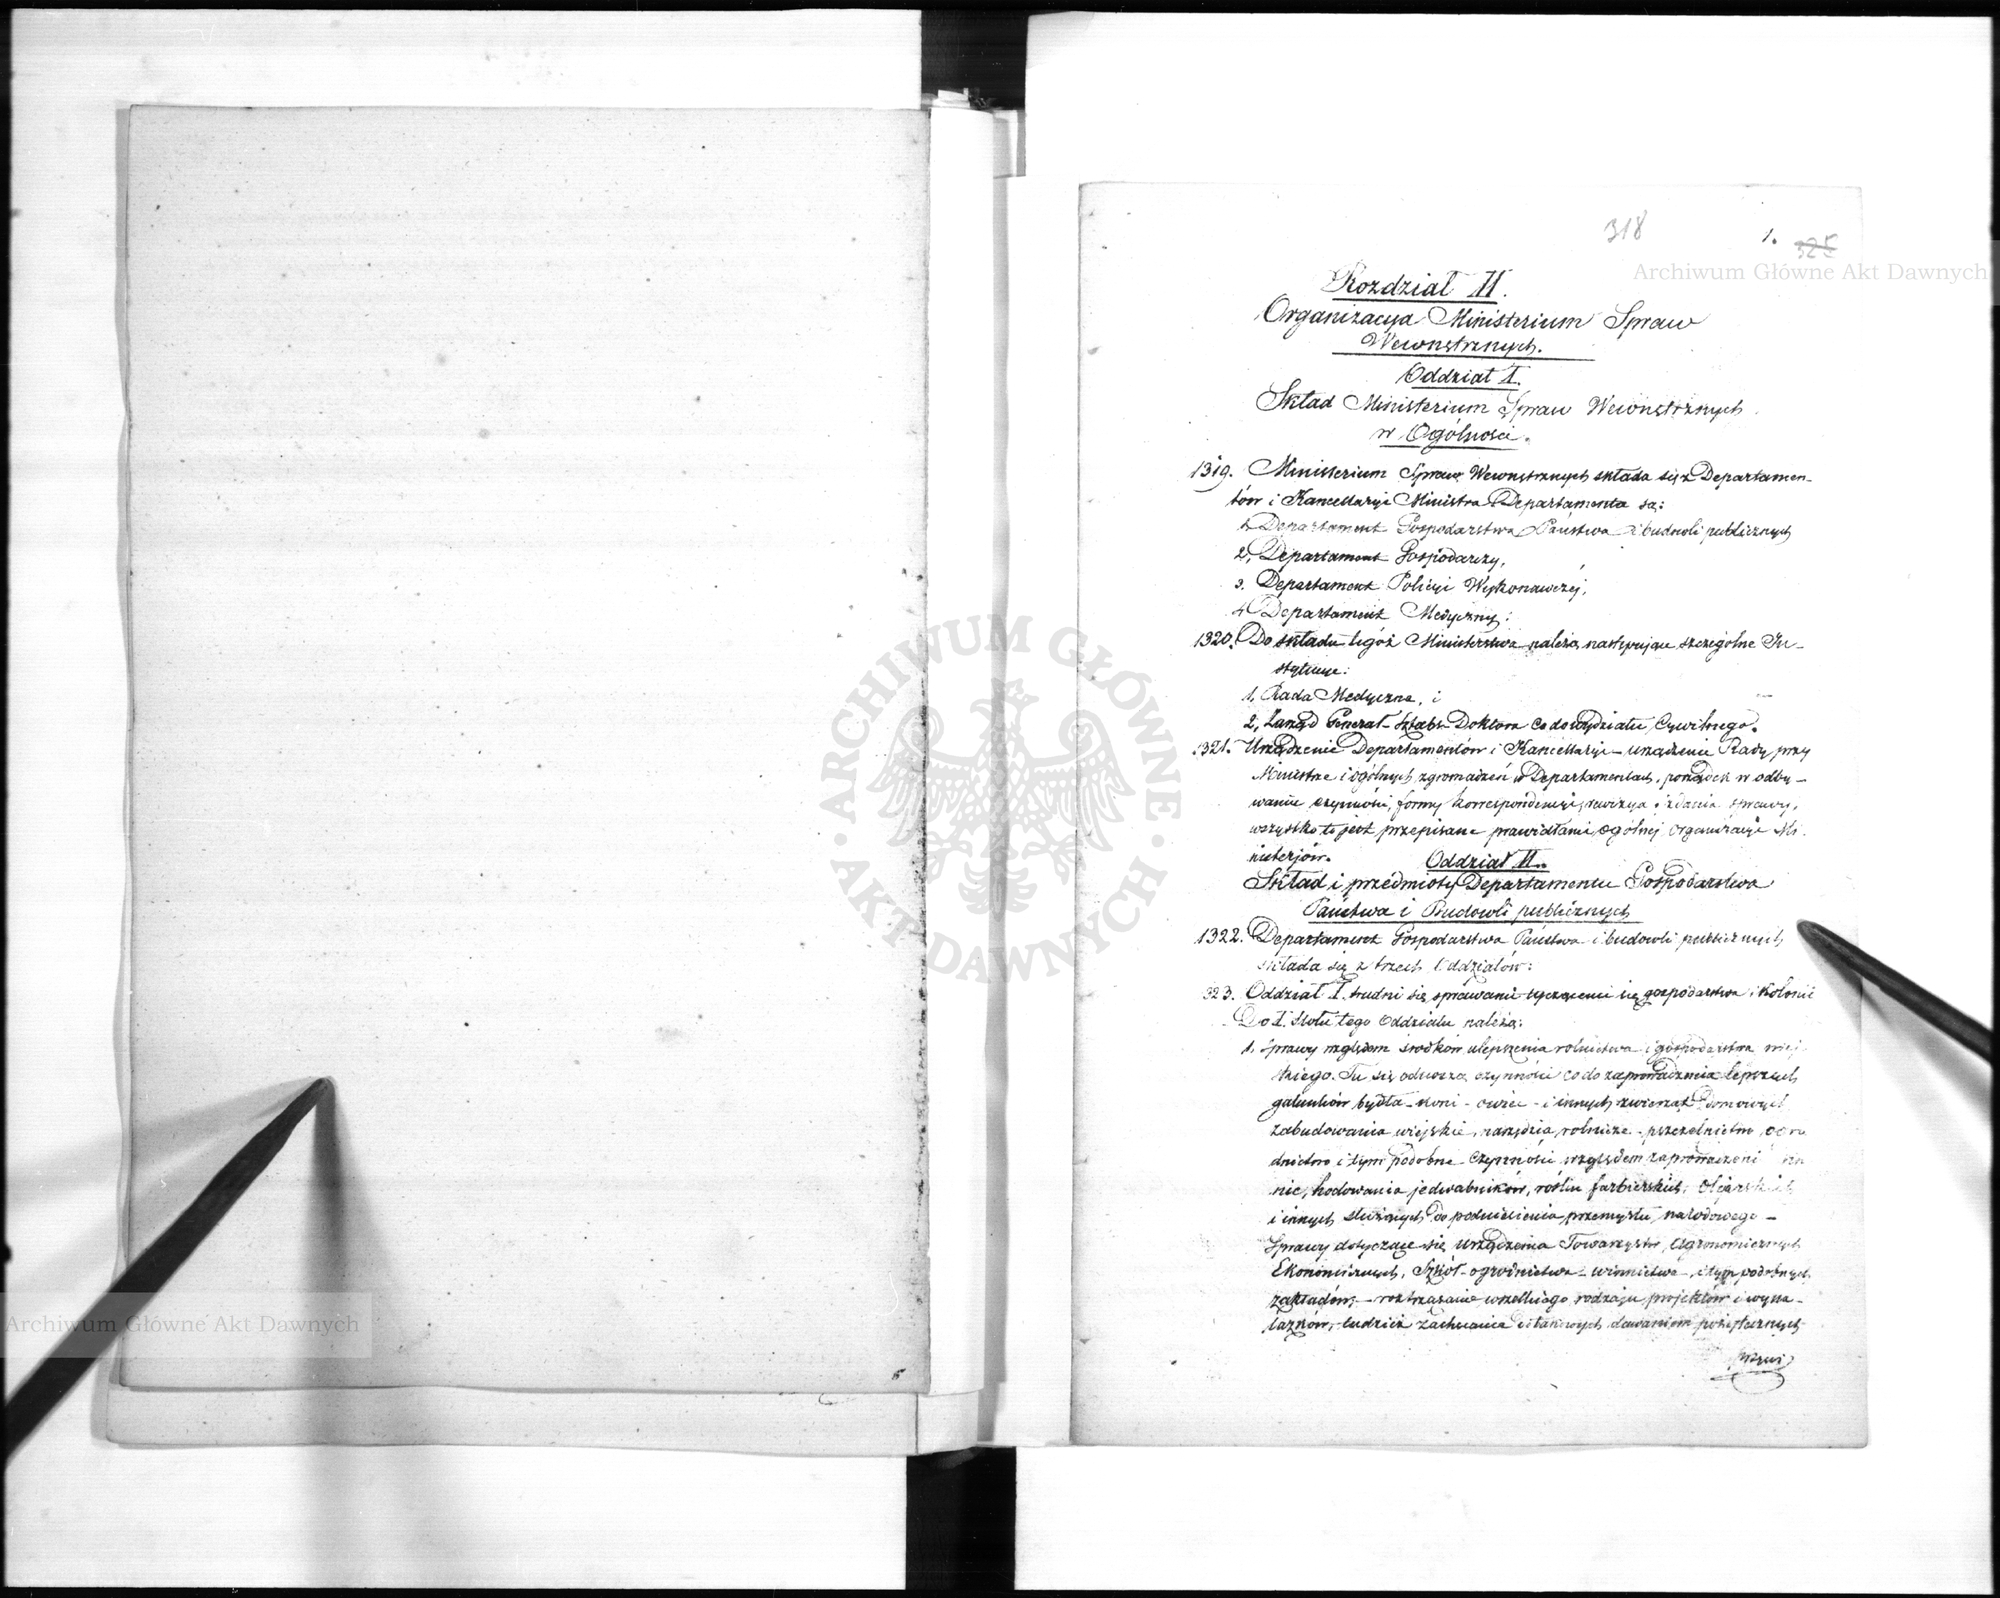 318
1.
325
Rozdział II.
Organizacyja Ministerium Spraw
Wewnętrznych.
Oddział I.
Skład Ministerium Spraw Wewnętrznych
w Ogólności.
1319. Ministerium Spraw Wewnętrznych składa się z Departamen-
tów i Kancellaryi Ministra Departamenta są:
1. Departament Gospodarstwa Państwa i budowli publicznych
2, Departament Gospodarczy,
3. Departament Policyi Wykonawczéj,
4. Departament Medyczny:
1320. Do składu tegóż Ministerstwa należą następujące szczególne In-
stytucye:
1, Rada Medyczna, i
2, Zarząd Generał-Sztabs-Doktora co do wydziału Cywilnego.
1321. Urządzenie Departamentów i Kancellaryi - urządzenie Rady przy
Ministrze i ogólnych zgromadzeń w Departamentach, porządek w odby-
waniu czynności, formy korrespondencyi, rewizya i zdania sprawy,
wszystko to jest przepisane prawidłami ogólnej organizacyi Mi-
nisterjów.
Oddział II.
Skład i przedmioty Departamentu Gospodarstwa
Państwa i Budowli publicznych
1322. Departament Gospodarstwa Państwa i budowli publicznych
składa się z trzech Oddziałów:
323. Oddział I. trudni się sprawami tyczącemi się gospodarstwa i kolonii
Do I. Stołu tego Oddziału należą:
1, Sprawy względem srodków ulepszenia rolnictwa i gospodarstwa wiej
skiego. Tu się odnoszą czynności co do zaprowadzenia lepszych
gatunków bydła - koni - owiec - i innych zwierząt domowych
zabudowania wiejskie, narzędzia rolnicze - pszczelnictwo, ogro
dnictwo i tym podobne czynności względem zaprowadzeni
nic, hodowania jedwabników, roślin farbierskich, olejarskich
i innych służących do podniesienia przemysłu narodowego -
Sprawy dotyczące się urządzenia Towarzystw Agronomicznych
Ekonomicznych, Szkół - ogrodnictwa - winnictwa - i tym podobnych
zakładów; - roztrząsanie wszelkiego rodzaju projektów i wyna-
lazków, - tudzież zachęcanie i dawaniem pożytecznych
Archiwum Główne Akt Dawnych
Archiwum Główne Akt Dawnych
· ARCHIWUM GŁÓWNE · AKT DAWNYCH